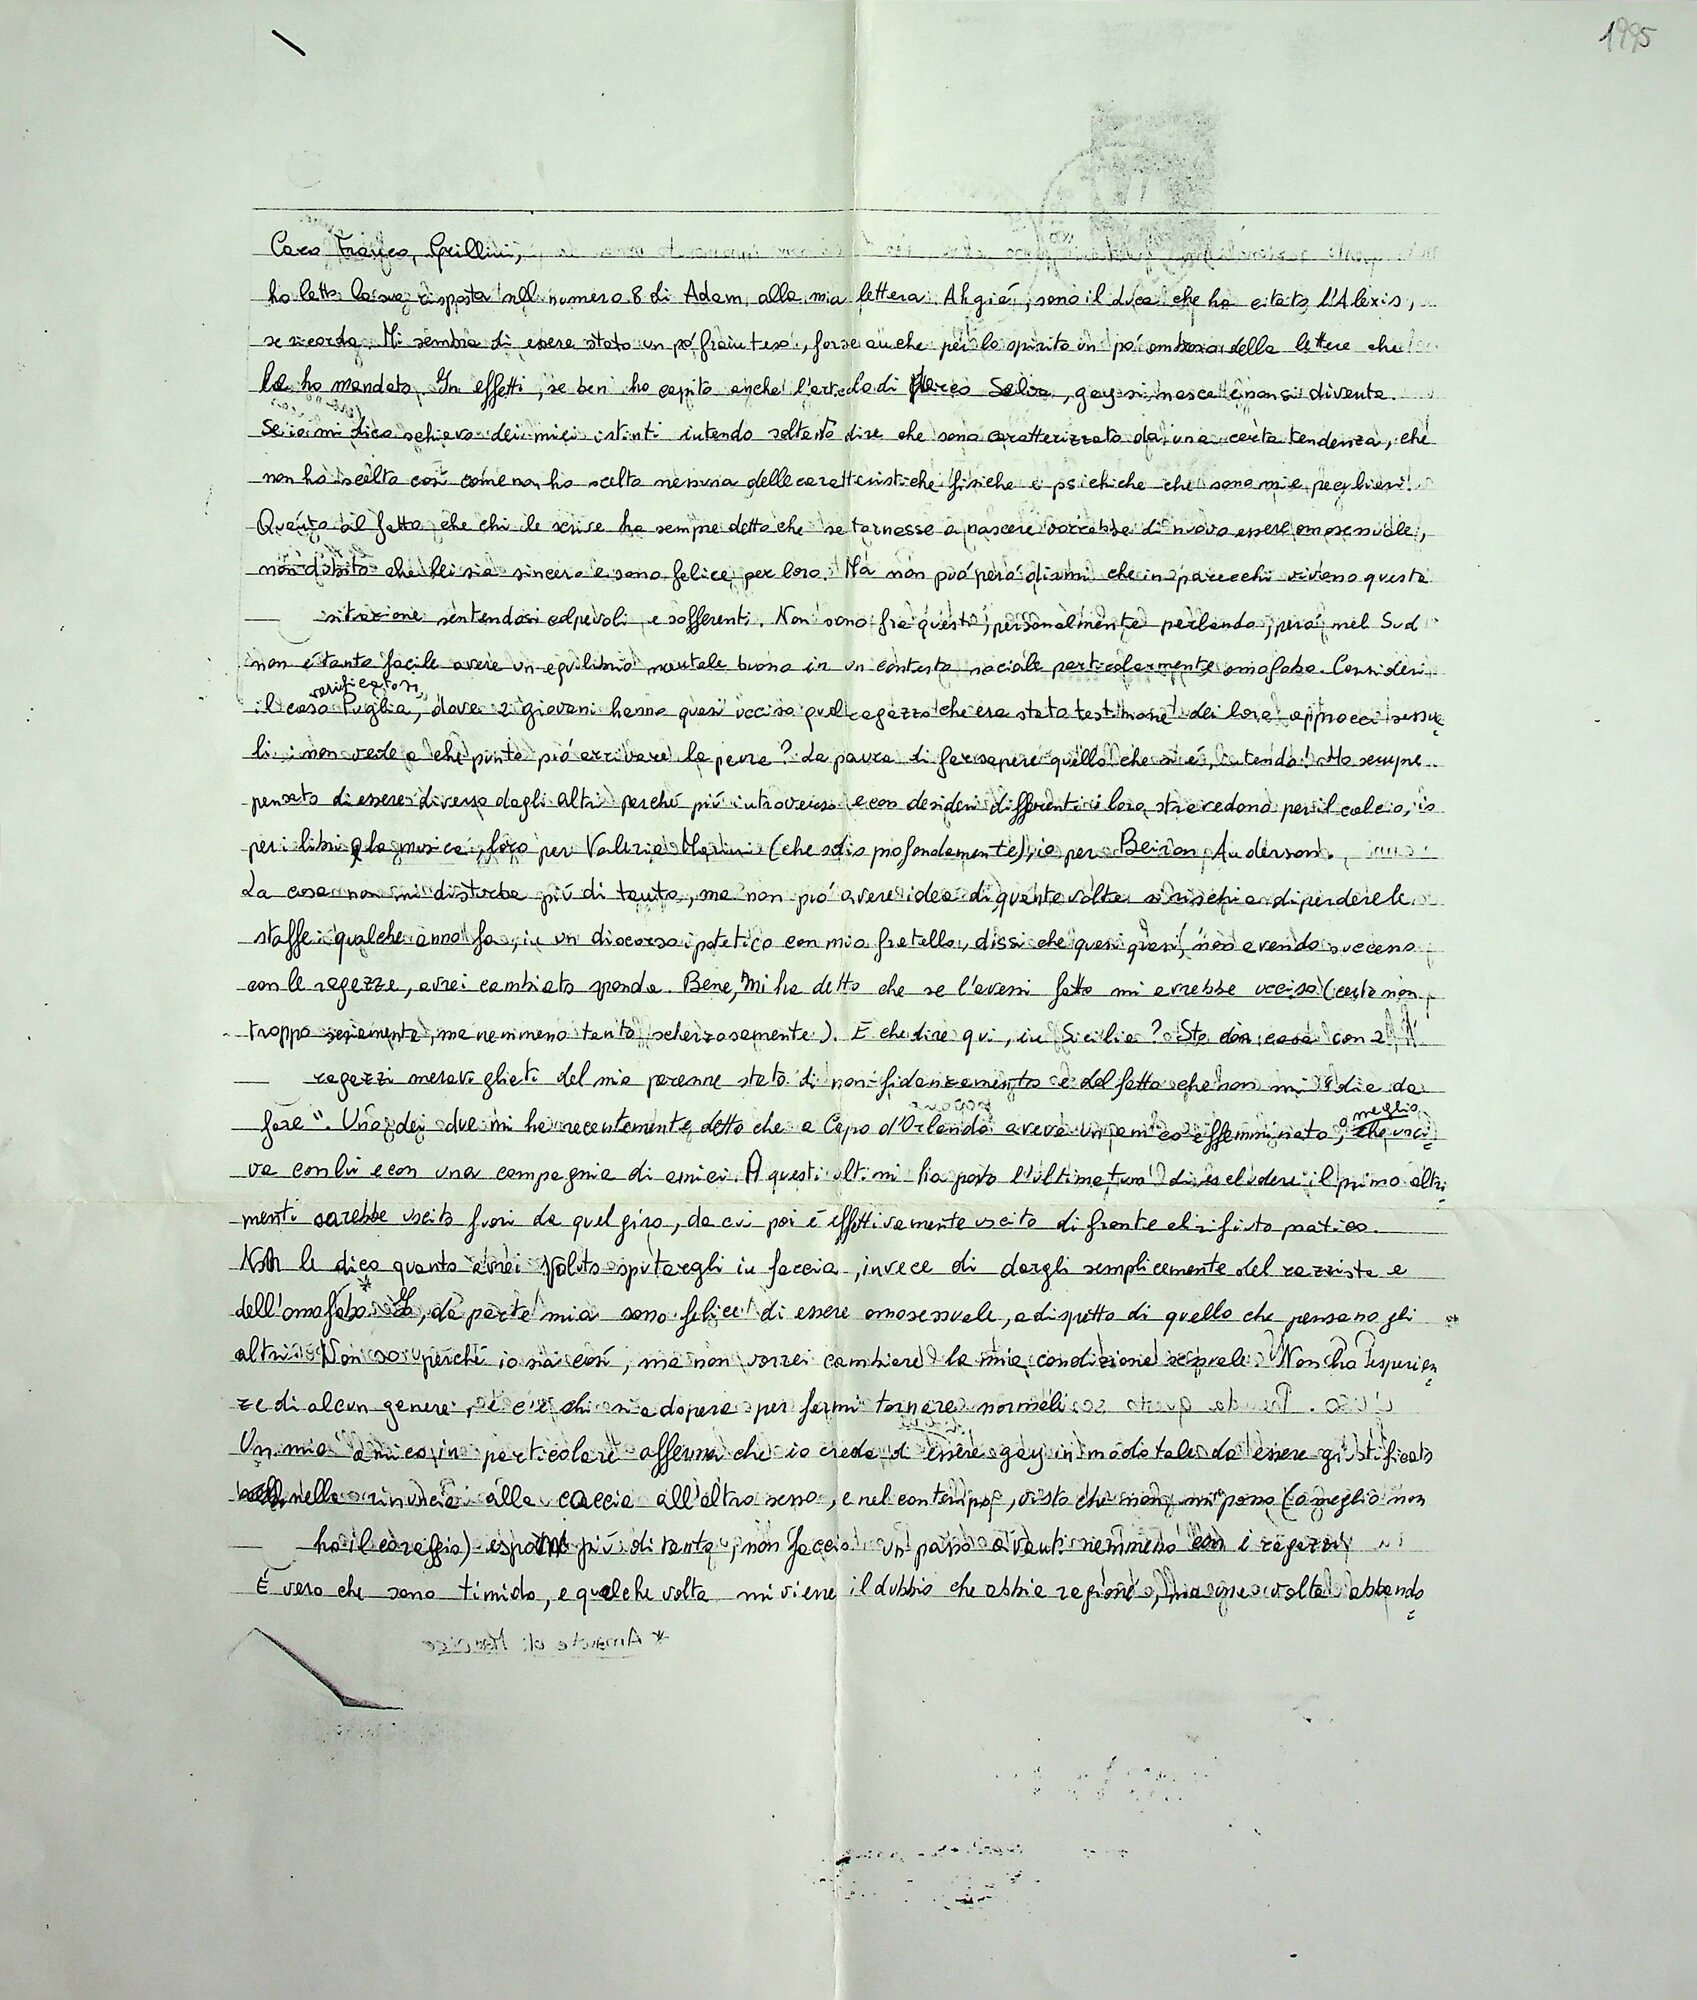 1995
Caro Franco Grillini,
ho letto la sua risposta nel numero 8 di Adam, alla mia lettera. Ah già, sono il Luca che ha citato l'Alexis,
se ricorda. Mi sembra di essere stato un pó frainteso, forse anche per lo spirito un pó ombroso della lettera che
le ho mandato. In effetti, se ben ho capito anche l'articolo di Marco, gay si nasce e non si diventa.
Se io mi dico schiavo dei miei istinti intendo soltanto dire che sono caratterizzato da una certa tendenza, che
non ho scelto così come non ho scelto nessuna delle caratteristiche fisiche e psichiche che sono mie peculiari.
Quanto al fatto che chi le scrive ha sempre detto che se tornasse a nascere vorrebbe di nuovo essere omosessuale,
non dubito che lei sia sincero e sono felice per loro. Ma non può però dirmi che in parecchi vivono questa
situazione sentendosi colpevoli e sofferenti. Non sono fra questi, personalmente parlando, però nel Sud
non é tanto facile avere un equilibrio mentale buono in un contesto sociale particolarmente omofobo. Consideri
il caso verificatosi in Puglia, dove 2 giovani hanno quasi ucciso quel ragazzo che era stato testimone dei loro approcci sessua
li: non vede a che punto può arrivare la paura? La paura di far sapere quello che si é, intendo! Ho sempre
pensato di essere diverso dagli altri perché più introverso e con desideri differenti: loro stravedono per il calcio, io
per i libri e la musica, loro per Valeria Marini (che odio profondamente), io per Beiron Anderson.
La cosa non mi disturba più di tanto, ma non può avere idea di quante volte si rischia di perdere le
staffe: qualche anno fa, in un discorso ipotetico con mio fratello, dissi che quasi quasi, non avendo successo
con le ragazze, avrei cambiato sponda. Bene, mi ha detto che se l'avessi fatto mi avrebbe ucciso (certo non
troppo seriamente, ma nemmeno tanto scherzosamente). E che dire qui, in Sicilia? Sto in casa con 2
ragazzi meravigliati del mio perenne stato di non-fidanzamento e del fatto che non mi "dia da
fare". Uno dei due mi ha recentemente detto che a Capo d'Orlando aveva un amico effemminato, o meglio usci
va con lui e con una compagnia di amici. A questi ultimi ha posto l'ultimatum di escludere il primo altri
menti sarebbe uscito fuori da quel giro, da cui poi é effettivamente uscito di fronte al rifiuto pratico.
Non le dico quanto avrei voluto sputargli in faccia, invece di dargli semplicemente del razzista e
dell'omofobo.* Io, da parte mia sono felice di essere omosessuale, a dispetto di quello che pensano gli
altri. Non so perché io sia così, ma non vorrei cambiare la mia condizione sessuale. Non ho esperien
ze di alcun genere, e c'è chi si adopera per farmi tornare normale.
Un mio amico in particolare afferma che io creda di essere gay in modo tale da essere giustificato
nella rinuncia alla caccia all'altro sesso, e nel contempo, visto che non mi posso (o meglio non
ho il coraggio) espormi più di tanto, non faccio un passo avanti nemmeno con i ragazzi.
É vero che sono timido, e qualche volta mi viene il dubbio che abbia ragione, ma una volta abbando
* Amante di Narciso